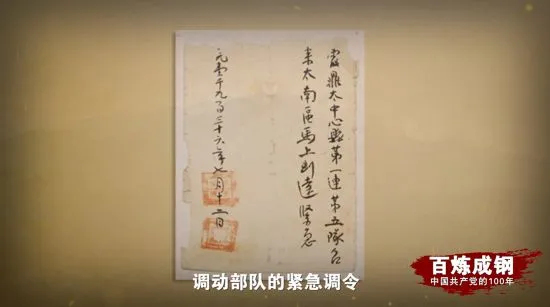 霞鼎太中心县第一连第五队台
来太南區馬上到達緊急
元壹千九百三十六年七月十二日
调动部队的紧急调令
百炼成钢
中国共产党的100年